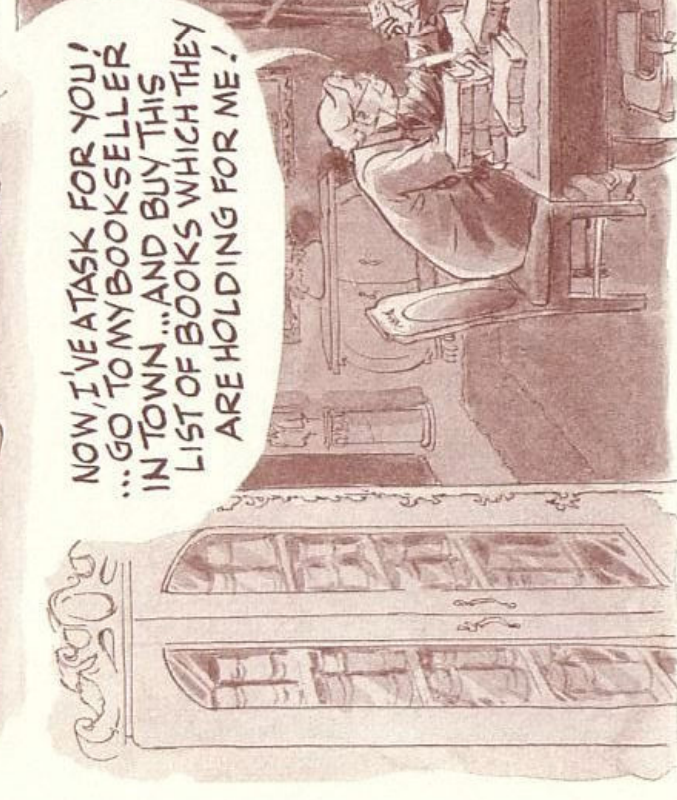 NOW, I'VE A TASK FOR YOU!
...GO TO MY BOOKSELLER
IN TOWN ...AND BUY THIS
LIST OF BOOKS WHICH THEY
ARE HOLDING FOR ME!